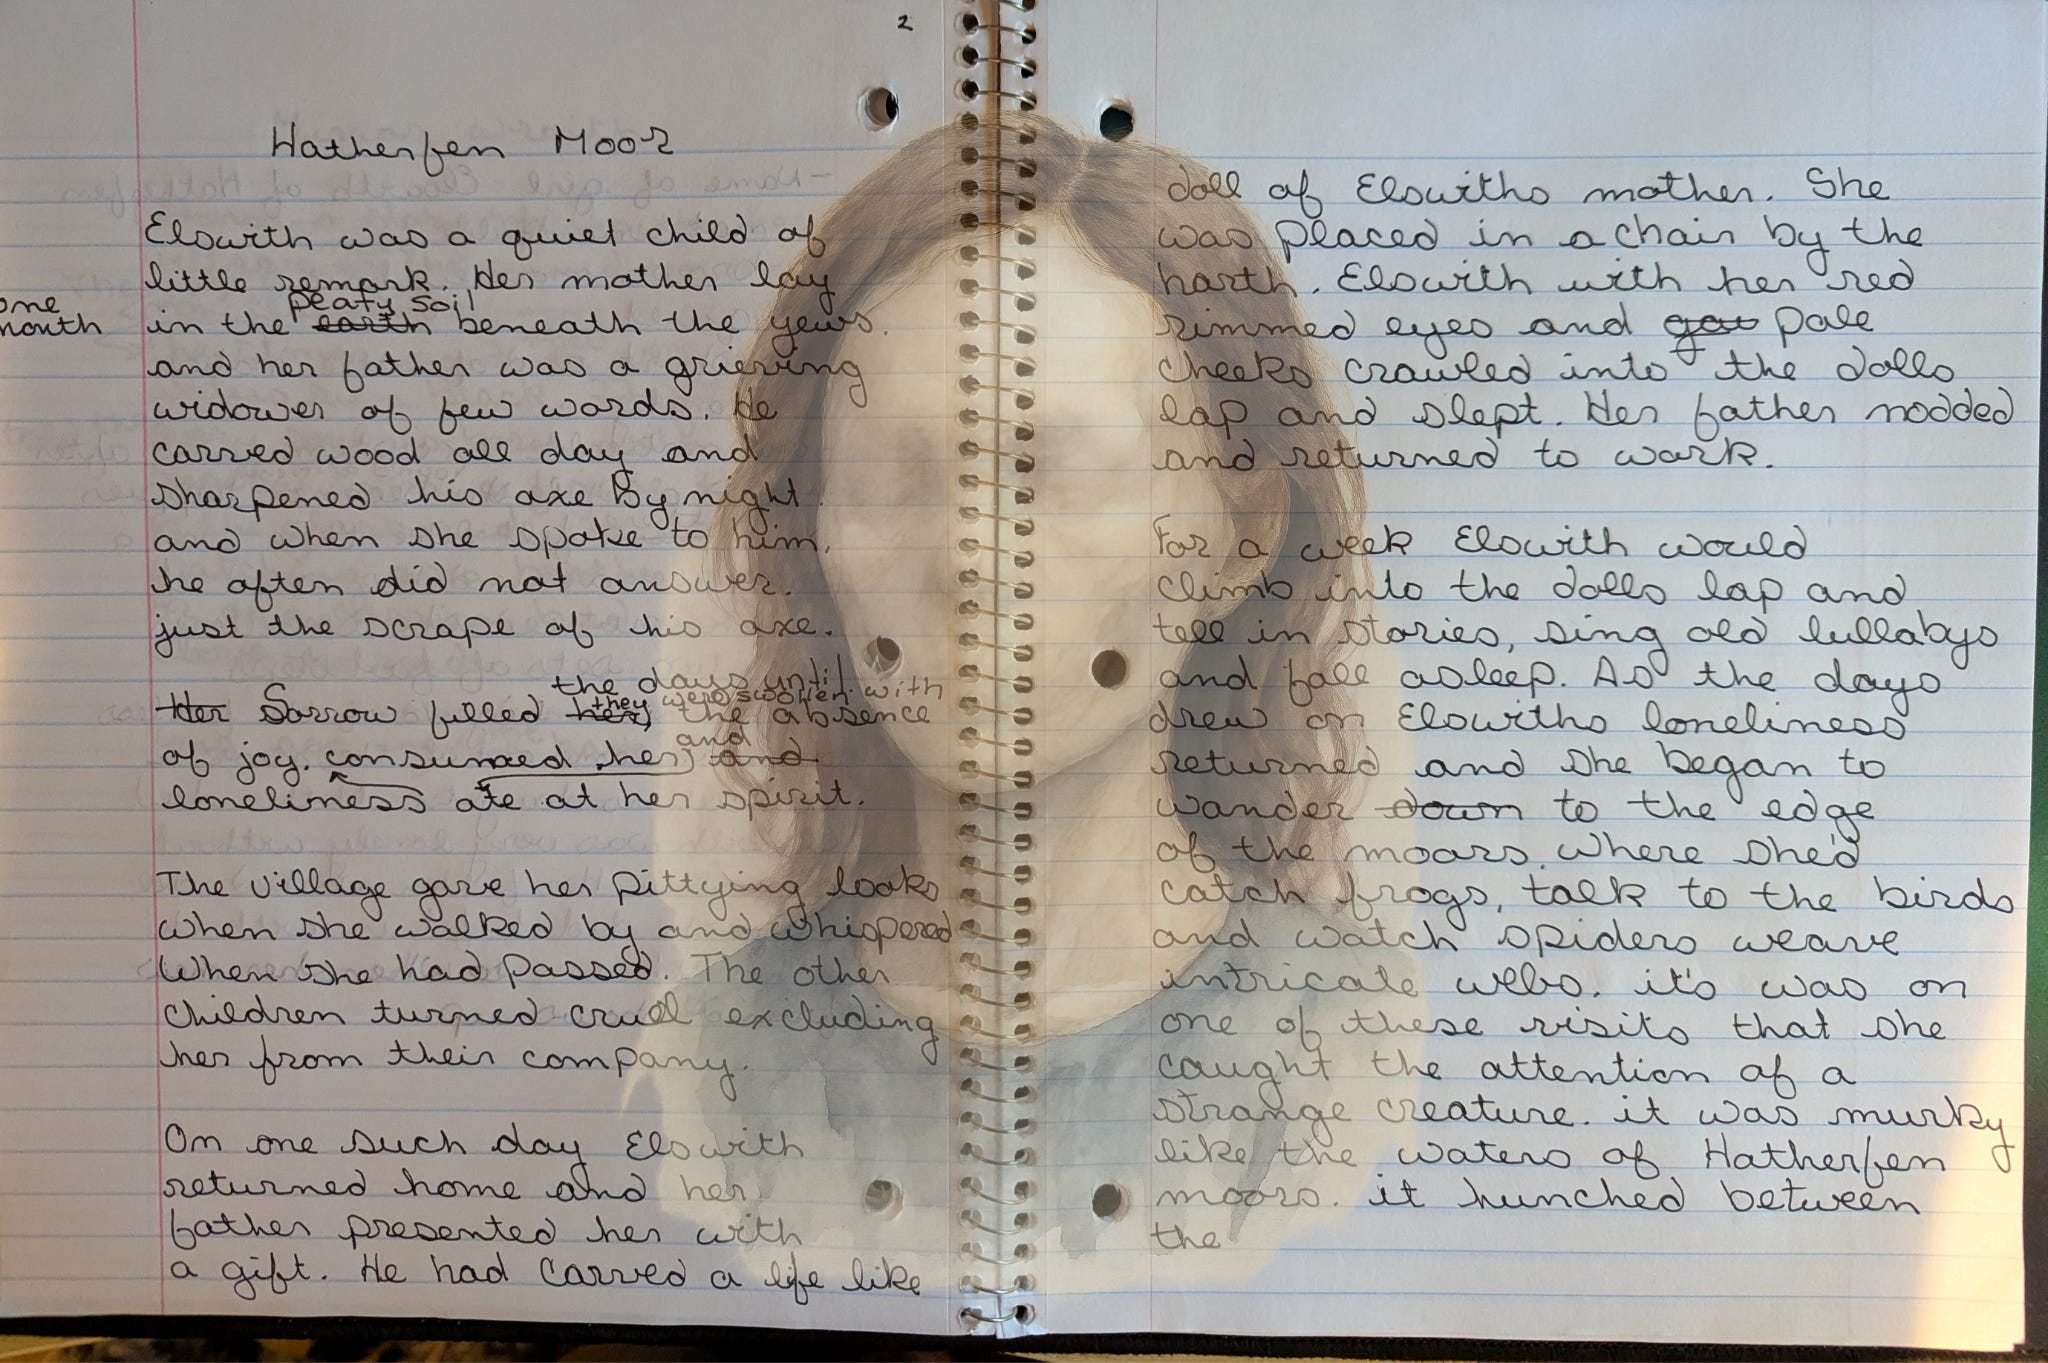 2
Hatherfen Moor
Elswith was a quiet child of
little remark. Her mother lay
one
month
peaty soil
in the earth beneath the yews.
and her father was a grieving
widower of few words. He
carved wood all day and
sharpened his axe by night.
and when she spoke to him,
he often did not answer.
just the scrape of his axe.
the days until
they were swollen with
Her Sorrow filled her, the absence
and
of joy. consumed her, and
loneliness ate at her spirit.
The village gave her pittying looks
when she walked by and whispered
when she had passed. The other
children turned cruel excluding
her from their company.
On one such day Elswith
returned home and her
father presented her with
a gift. He had carved a life like
doll of Elswiths mother. She
was placed in a chair by the
harth. Elswith with her red
rimmed eyes and pale
cheeks crawled into the dolls
lap and slept. Her father nodded
and returned to work.
For a week Elswith would
climb into the dolls lap and
tell in stories, sing old lullabys
and fall asleep. As the days
drew on Elswiths loneliness
returned and she began to
wander down to the edge
of the moors. where she'd
catch frogs, talk to the birds
and watch spiders weave
intricate webs. it's was on
one of these visits that she
caught the attention of a
strange creature. it was murky
like the waters of Hatherfen
moors. it hunched between
the